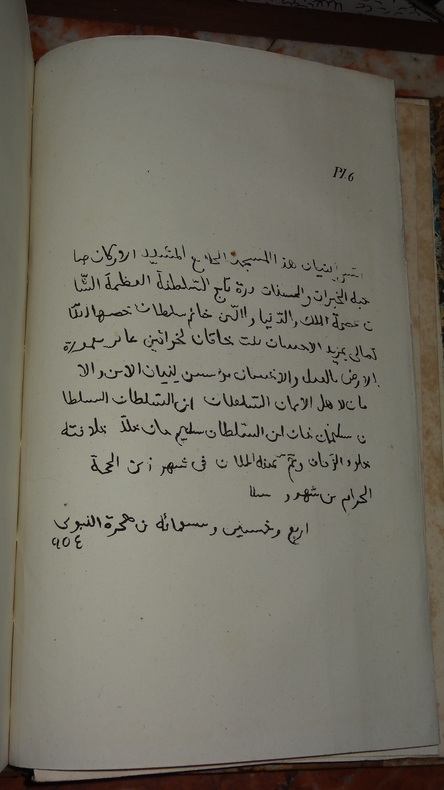 Pl. 6
البنيان هذ المسجد الجامع المشييد الاركان صا
حبة الخيرات والحسنات درة تاج السلطنة العظمة
عصمة الملك والدنيا والدين خانم سلطان خصها الله
تعالى بمزيد الاحسان بنت خاقان
الارض بالعدل والاحسان مؤسس بنيان الامن والا
مان لاهل الايمان السلطان ابن السلطان السلطا
ن سليمان خان ابن السلطان سليم خان خلد خلافته
الزمان وتم فى شهر ذى الحجة
الحرام من شهور
اربع وخمسين وتسعمائة من هجرة النبوى
٩٥٤